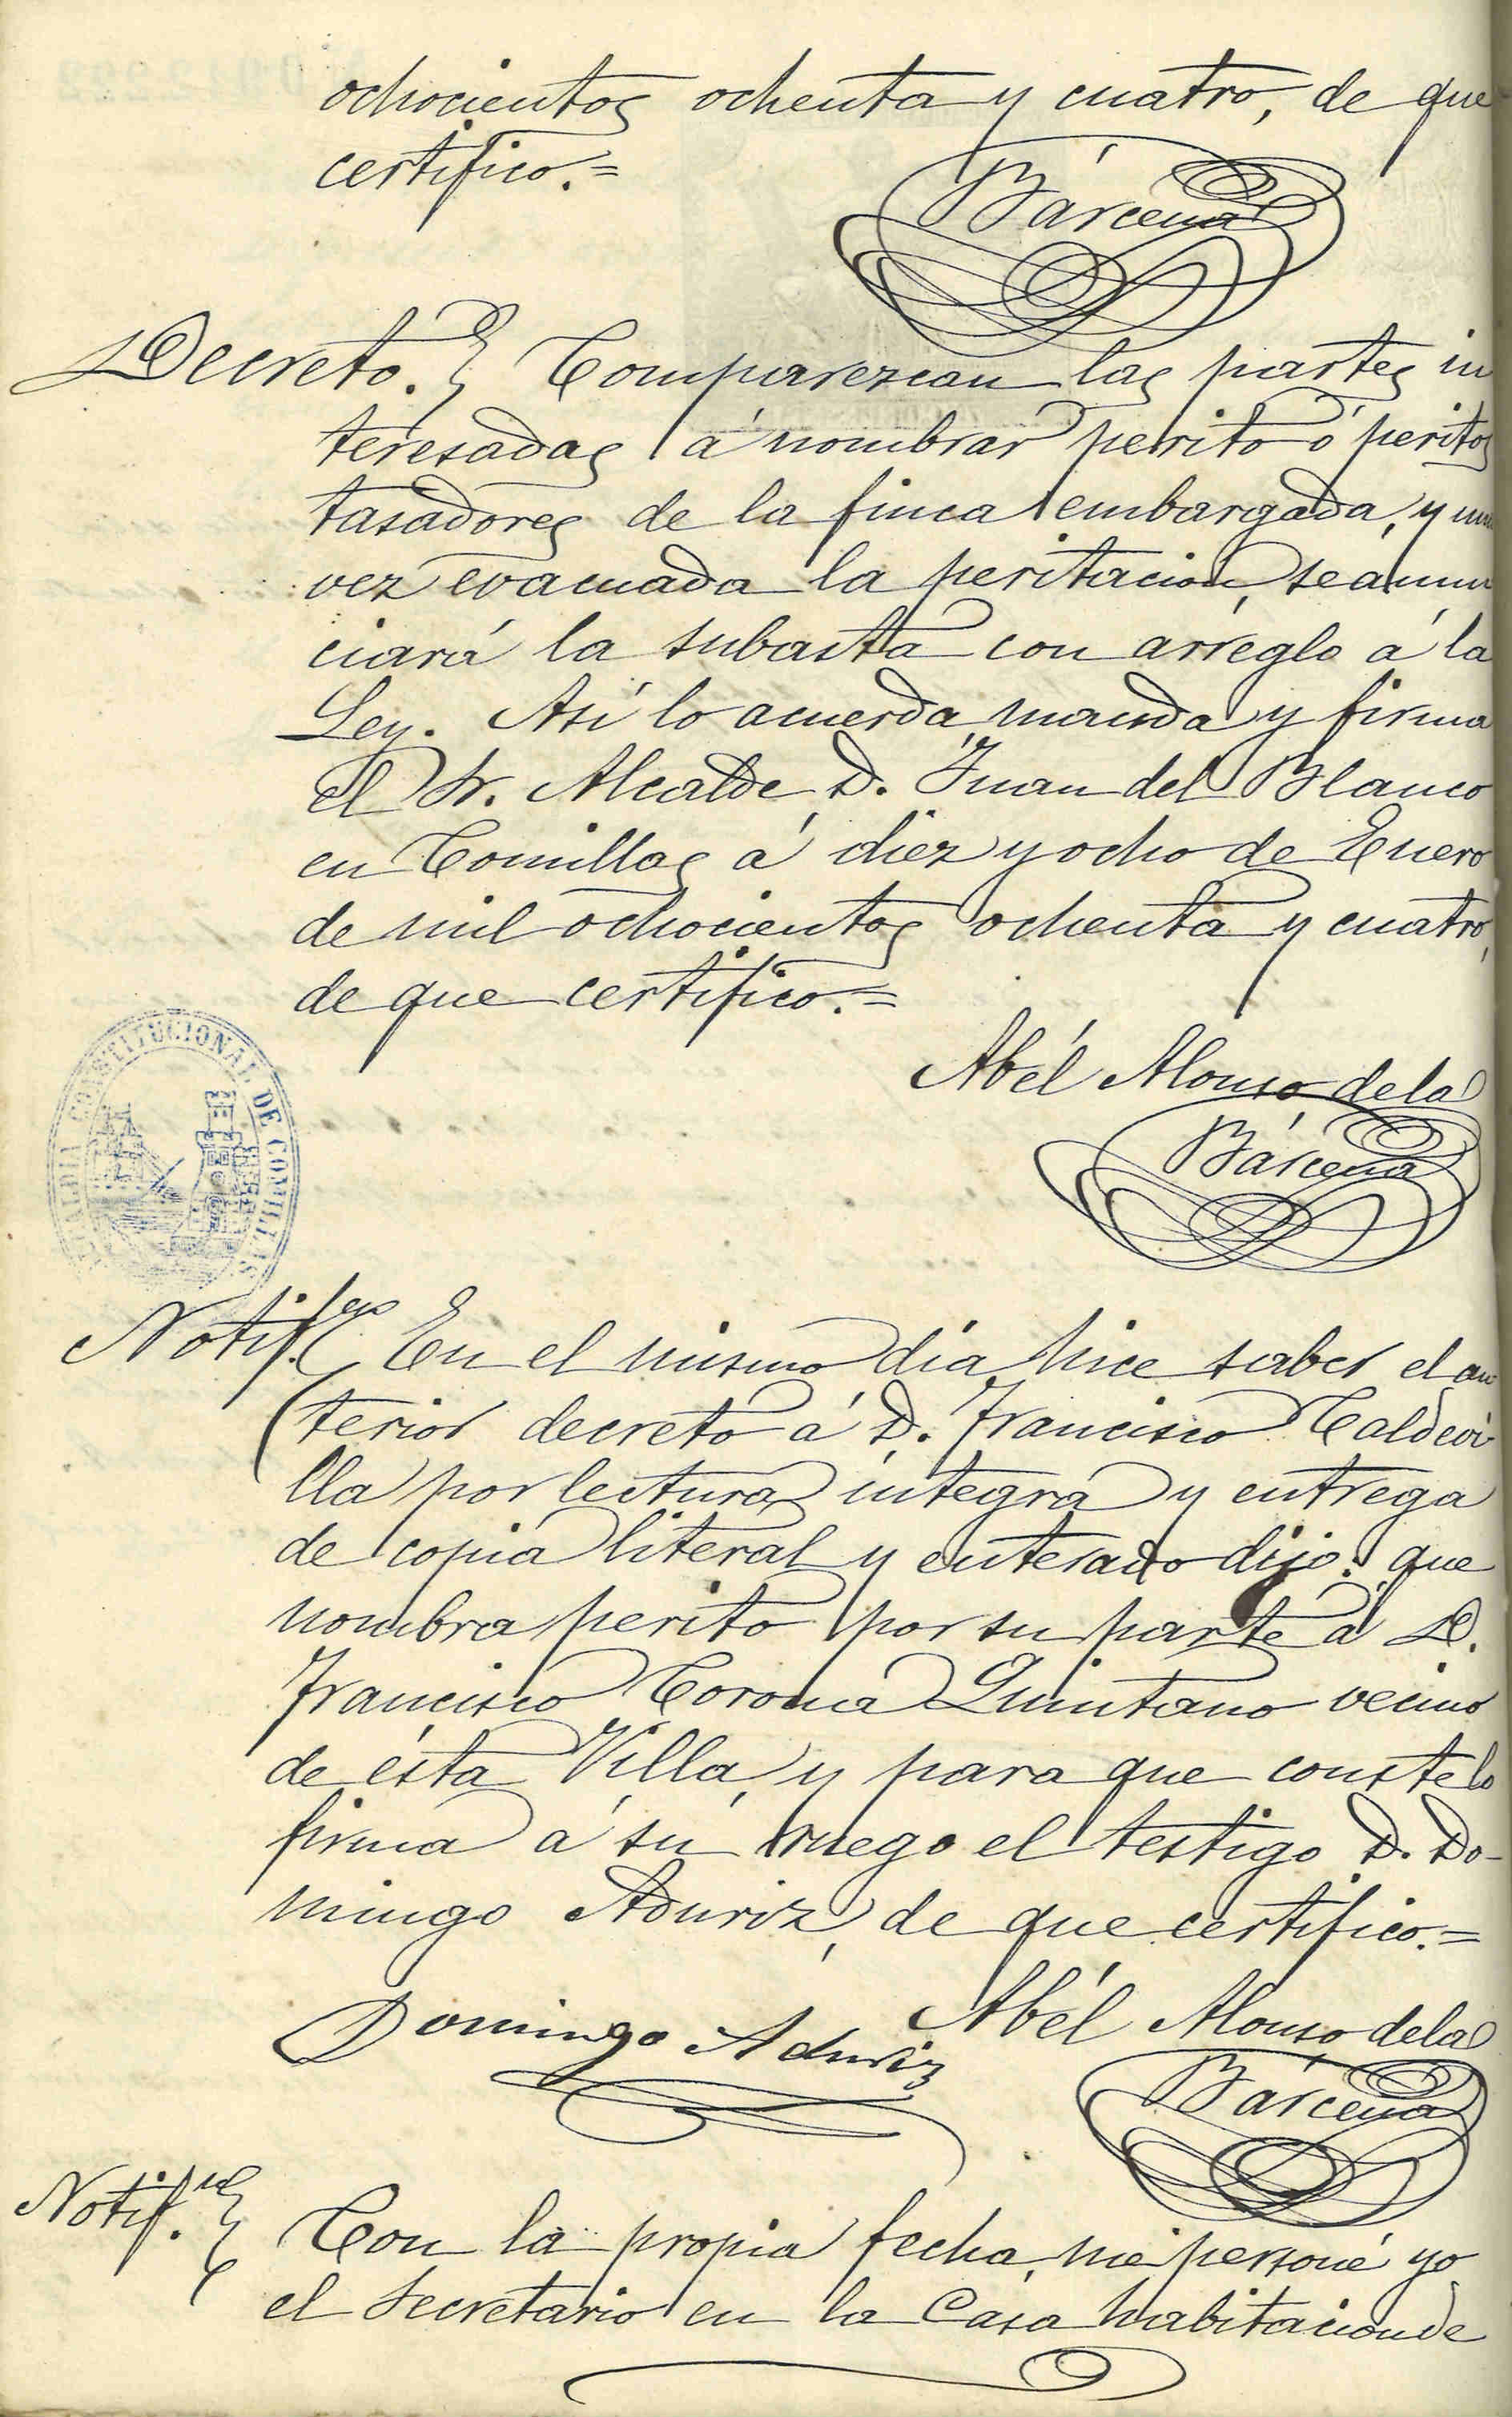 ochocientos ochenta y cuatro, de que
certifico.=
Bárcena
Decreto. Comparezcan las partes in
teresadas á nombrar perito ó peritos
tasadores de la finca embargada, y una
vez evacuada la peritacion, se anun
ciará la subasta con arreglo á la
Ley. Asi lo acuerda, manda y firma
el Sr. Alcalde, D. Juan del Blanco
en Comillas á diez y ocho de Enero
de mil ochocientos ochenta y cuatro,
de que certifico.=
ALCALDIA CONSTITUCIONAL DE COMILLAS
Abél Alonso de la
Bárcena
Notif.con En el mismo dia hice saber el an
terior decreto á D. Francisco Caldevi
lla por lectura íntegra y entrega
de copia literal y enterado dijo: que
nombra perito por su parte á D.
Francisco Corona Quintano vecino
de ésta Villa, y para que conste lo
firma á su ruego el testigo D. Do-
mingo Aduriz, de que certifico.=
Domingo Aduriz
Abél Alonso de la
Bárcena
Notif.on Con la propia fecha, me personé yo
el Secretario en la Casa habitacion de